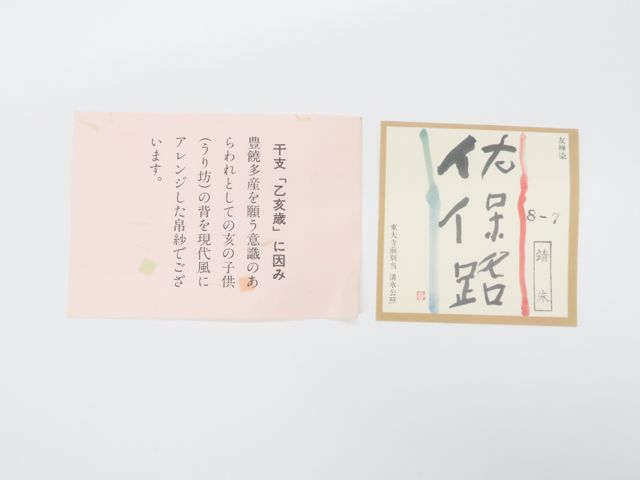 干支「乙亥歳」に因み
豊饒多産を願う意識のあ
らわれとしての亥の子供
(うり坊)の背を現代風に
アレンジした帛紗でござ
います。
友禅染
佐保路
8-7
錆朱
東大寺前別当 清水公照